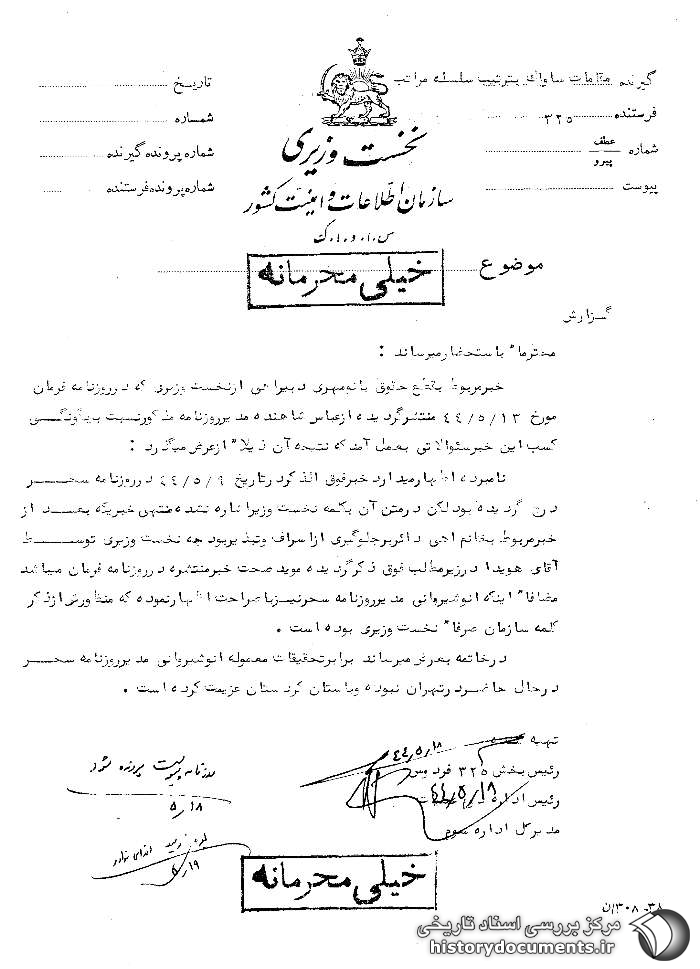 گیرنده مقامات ساواک بترتیب سلسله مراتب
فرستنده ۳۲۵
شماره عطف پیرو
پیوست
تاریخ
شماره
شماره پرونده گیرنده
شماره پرونده فرستنده
نخست وزیری
سازمان اطلاعات و امنیت کشور
س.ا.و.ا.ک
موضوع
خیلی محرمانه
گزارش
محترما" باستحضار میرساند :
خبر مربوط بقطع حقوق بانو مهری دیبرا هی از نخست وزیری که در روزنامه فرمان
مورخ ۴۴/۵/۱۳ منتشر گردیده از عباس شاهنده مدیر روزنامه مذکور نسبت بچگونگی
کسب این خبر سئوالاتی بعمل آمد که نتیجه آن ذیلا" از عرض میگذرد :
نامبرده اظهار میدارد خبر فوق الذکر در تاریخ ۴۴/۵/۹ در روزنامه سحر
درج گردیده بود لکن در متن آن بکلمه نخست وزیر اشاره نشده منتهی خبریکه بعد از
خبر مربوط بخانم اهی دائر بر جلوگیری از اسراف و تبذیر بودجه نخست وزیری توسط
آقای هویدا در زیر مطالب فوق ذکر گردیده موید صحت خبر منتشره در روزنامه فرمان میباشد
مضافا" اینکه انوشیروانی مدیر روزنامه سحر نیز با صراحت اظهار نموده که منظورش از ذکر
کلمه سازمان صرفا" نخست وزیری بوده است .
در خاتمه بعرض میرساند برابر تحقیقات معموله انوشیروانی مدیر روزنامه سحر
در حال حاضر در تهران نبوده و باستان کردستان عزیمت کرده است .
تهیه کننده
۴۴/۵/۱۸
رئیس بخش ۳۲۵ فردوس
رئیس اداره
۴۴/۵/۱۸
مدیر کل اداره سوم
روزنامه پیوست پرونده شود
۵/۱۸
۵/۱۹
خیلی محرمانه
۳۸-۳۰۸/ن
مرکز بررسی اسناد تاریخی
historydocuments.ir